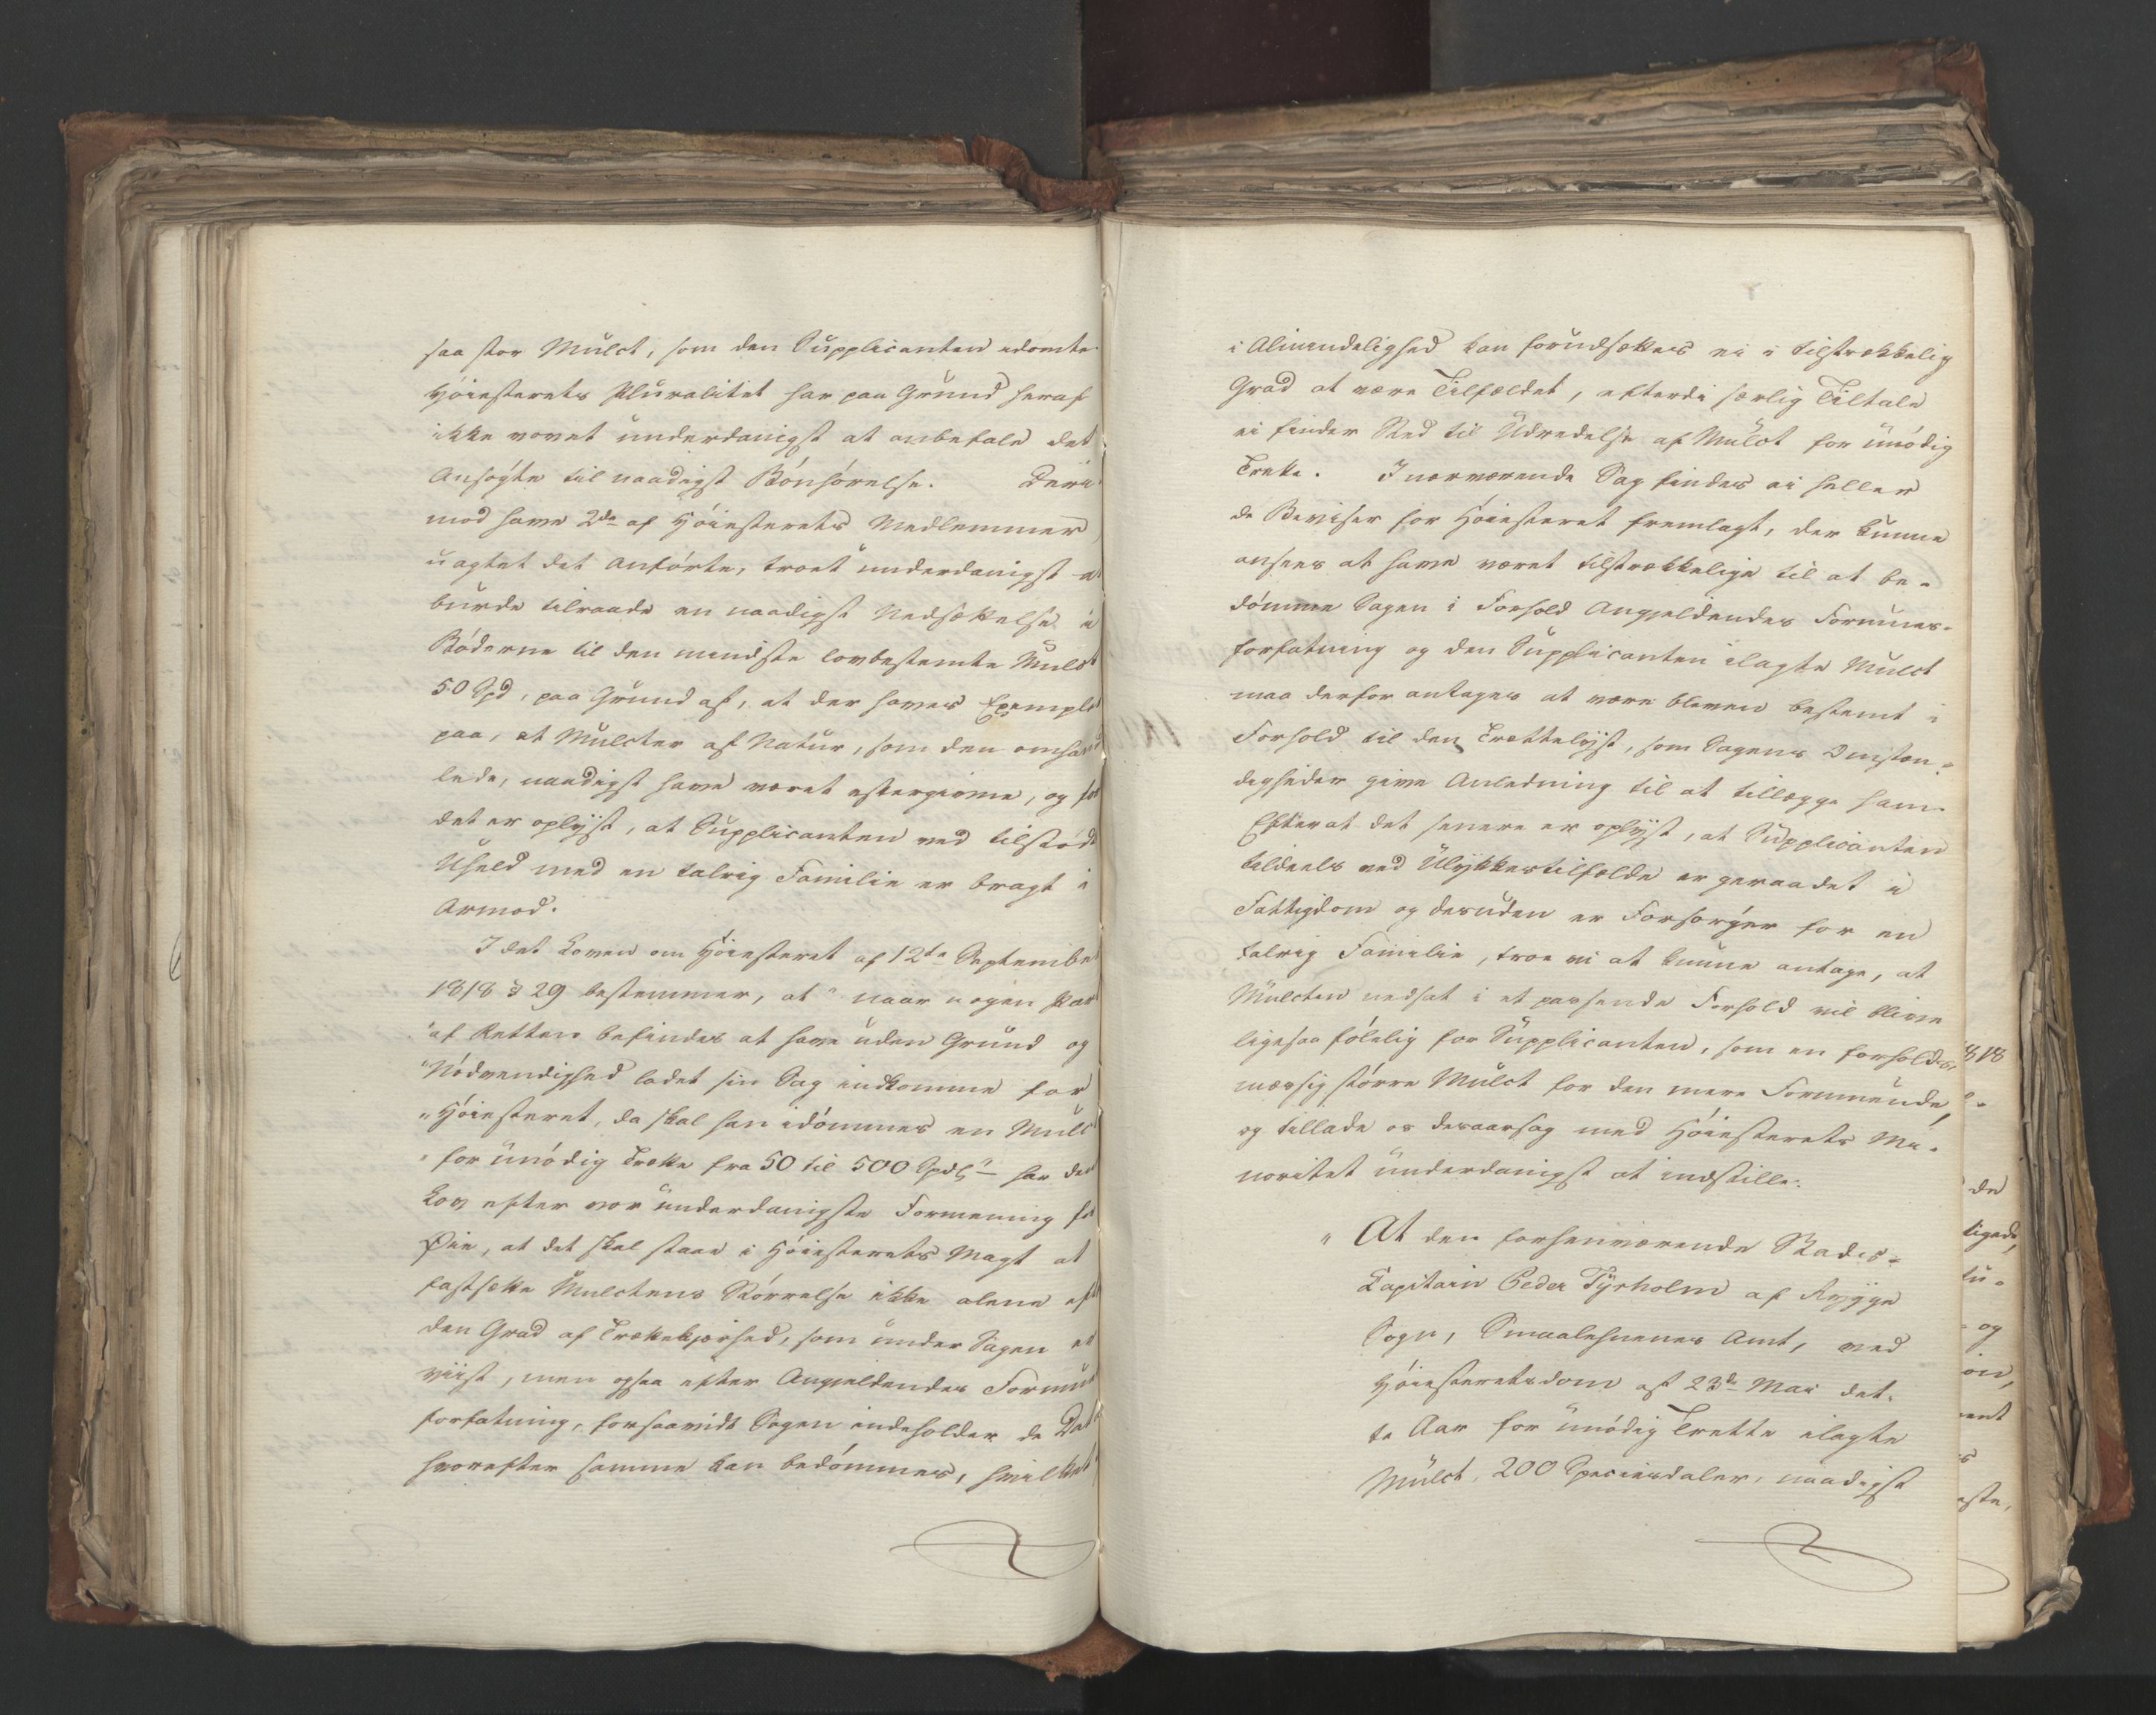 saa stor Mulct, som den Supplicanten idømte.
Høiesterets Pluralitet har paa Grund heraf
ikke vovet underdanigst at anbefale det
Ansøgte til naadigst Bønhørelse. Deri¬
mod have 2de af Høiesterets Medlemmer
uagtet det Anførte, troet underdanigst at
burde tilraade en naadigst Nedsættelse i
Bøderne til den mindste lovbestemte Mulct
50 Spd, paa Grund af, at der haves Exempler
paa, at Mulcter af Natur, som den omhand
lede, naadigst have været eftergivne, og for
det er oplyst, at Supplicanten ved tilstødt
Uheld med en talrig Familie er bragt i
Armod.
I det Loven om Høiesteret af 12te September
1818 § 29 bestemmer, at "naar nogen Part
"af Retten befindes at have uden Grund og
"Nødvendighed ladet sin Sag indkomme for
"Høiesteret, da skal han idømmes en Mulct
"for unødig Trætte fra 50 til 500 Spdl" har den
Lov efter vor underdanigste Formening for
Øie, at det skal staae i Høiesterets Magt at
fastsætte Mulctens Størrelse ikke alene efter
den Grad af Trættekjærhed, som under Sagen er
viist, men ogsaa efter Angjeldendes Formues
forfatning, forsaavidt Sagen indeholder de Data
hvorefter samme kan bedømmes, hvilket
i Almindelighed kan forudsættes ei i tilstrækkelig
Grad at være Tilfældet, efterdi særlig Tiltale
ei finder Sted til Udredelse af Mulct for unødig
Trætte. I nærværende Sag findes ei heller
de Beviser for Høiesteret fremlagt, der kunne
ansees at have været tilstrækkelige til at be-
dømme Sagen i Forhold Angjeldendes Formues-
forfatning og den Supplicanten ilagte Mulct
maa derfor antages at være bleven bestemt i
Forhold til den Trættelyst, som Sagens Omstæn-
digheder give Anledning til at tillægge ham.
Efterat det senere er oplyst, at Supplicanten
tildeels ved Ulykkestilfælde er geraadet i
Fattigdom og desuden er Forsørger for en
talrig Familie, troe vi at kunne antage, at
Mulcten nedsat i et passende Forhold vil blive
ligesaa følelig for Supplicanten, som en forholds-
mæssig større Mulct for den mere Formuende,
og tillade os desaarsag med Høiesterets Mi-
noritet underdanigst at indstille:
" At den forhenværende Stads-
Kapitain Peder Tyrholm af Rygge
Sogn, Smaalehnenes Amt, ved
Høiesteretsdom af 23de Mai det-
te Aar for unødig Trætte ilagte
Mulct, 200 Speciesdaler, naadigst
1818
de
ligede,
og